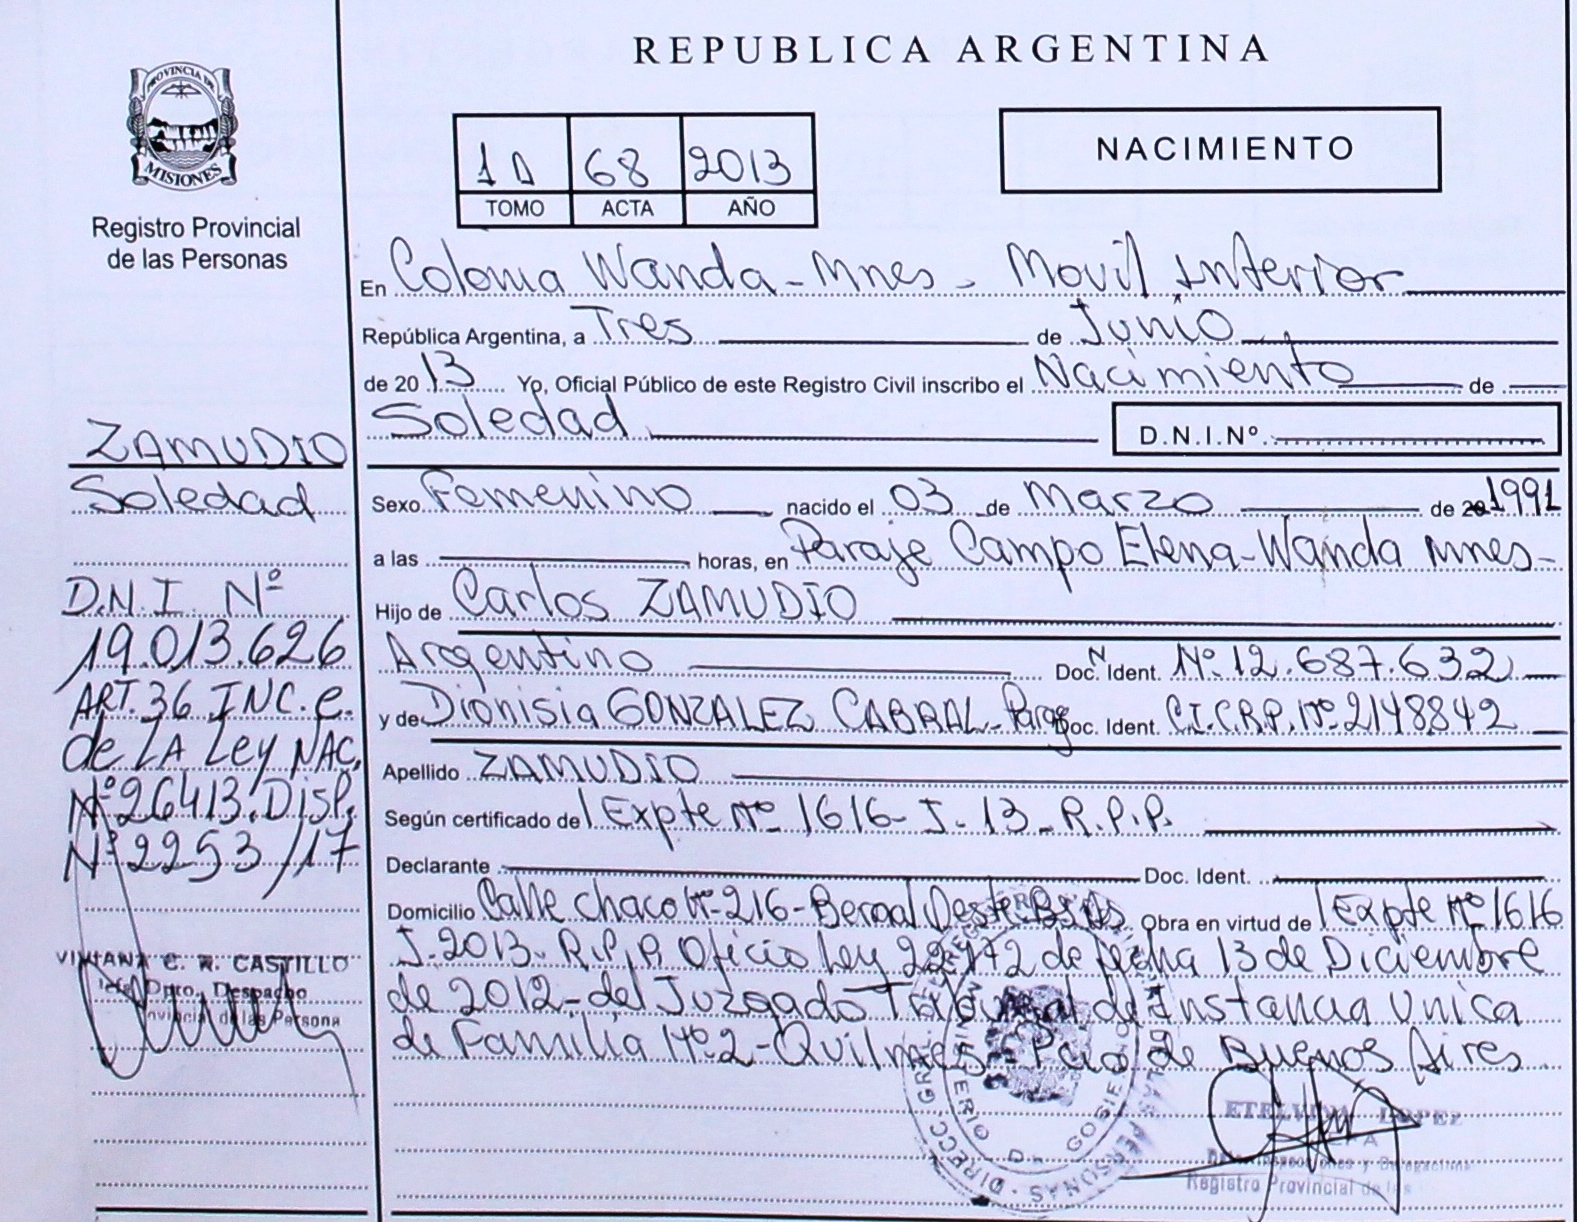 REPUBLICA ARGENTINA
PROVINCIA DE
MISIONES
Registro Provincial
de las Personas
1 D 68 2013
TOMO ACTA AÑO
NACIMIENTO
En Colonia Wanda - Mnes - Movil Interior
República Argentina, a Tres de Junio
de 2013 Yo, Oficial Público de este Registro Civil inscribo el Nacimiento de
Soledad D.N.I.Nº
Sexo Femenino nacido el 03 de Marzo de 20 1991
a las horas, en Paraje Campo Elena-Wanda Mnes-
Hijo de Carlos ZAMUDIO
Argentino Doc. N Ident. Nº 12.687.632
y de Dionisia GONZALEZ CABRAL - Parag Doc. Ident. C.I.C.R.P. Nº 2148842
Apellido ZAMUDIO
Según certificado de Expte Nº 1616- J- 13- R.P.P.
Declarante Doc. Ident.
Domicilio Calle Chaco Nº 216 - Bernal Oeste Bs As Obra en virtud de Expte Nº 1616
J-2013- R.P.P. Oficio Ley 22172 de fecha 13 de Diciembre
de 2012- del Juzgado Tribunal de Instancia Unica
de Familia Nº 2 - Quilmes - Pcia de Buenos Aires
ZAMUDIO
Soledad
D.N.I. Nº
19.013.626
ART. 36 INC. e.
de LA Ley NAC.
Nº 26413. DISP.
Nº 2253/17
VIVIANA C. R. CASTILLO
Jefe Dpto. Despacho
Provincial de las Persona
ETELVINA LOPEZ
Registro Provincial de las